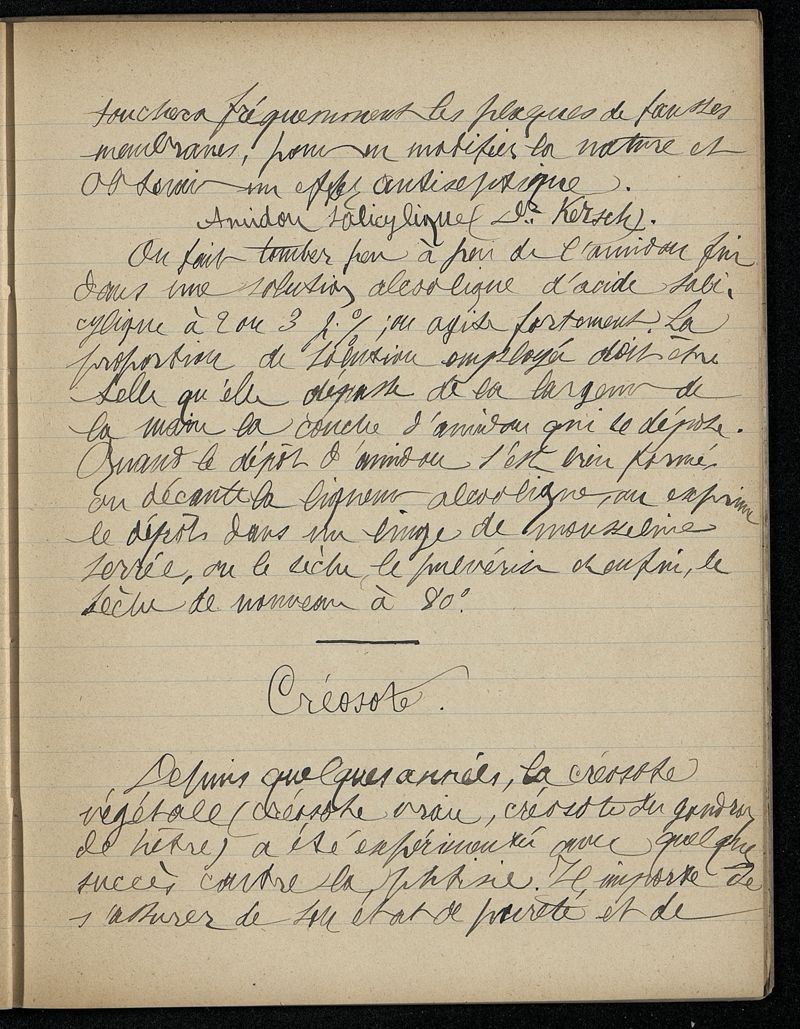 touchera fréquemment les plaques de fausses
membranes, pour en modifier la nature et
obtenir un effet antiseptique.
Amidon salicylique (Dr. Kersch).
On fait tomber peu à peu de l'amidon fin
dans une solution alcoolique d'acide sali-
cylique à 2 ou 3 p. %; on agite fortement. La
proportion de solution employée doit être
telle qu'elle dépasse de la largeur de
la main la couche d'amidon qui se dépose.
Quand le dépôt d'amidon s'est bien formé
on décante la liqueur alcoolique, on exprime
le dépôt dans un linge de mousseline
serrée, on le sèche, le pulvérise et enfin, le
sèche de nouveau à 80°.
Créosote.
Depuis quelques années, la créosote
végétale (créosote vraie, créosote du goudron
de hêtre) a été expérimentée avec quelque
succès contre la phtisie. Il importe de
s'assurer de son état de pureté et de